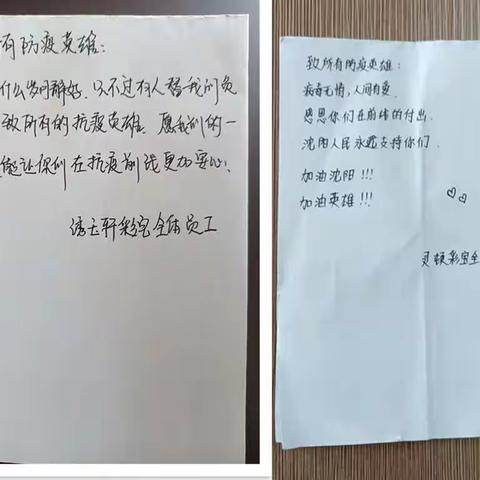 有防疫英雄：
什么岁月静好，只不过有人替我们负
致所有的抗疫英雄，愿我们的一
能让你们在抗疫前线更加安心。
彩宝全体员工
致所有防疫英雄：
病毒无情，人间有爱，
感恩你们在前线的付出，
沈阳人民永远支持你们。
加油沈阳!!!
加油英雄!!!
灵顿彩宝全